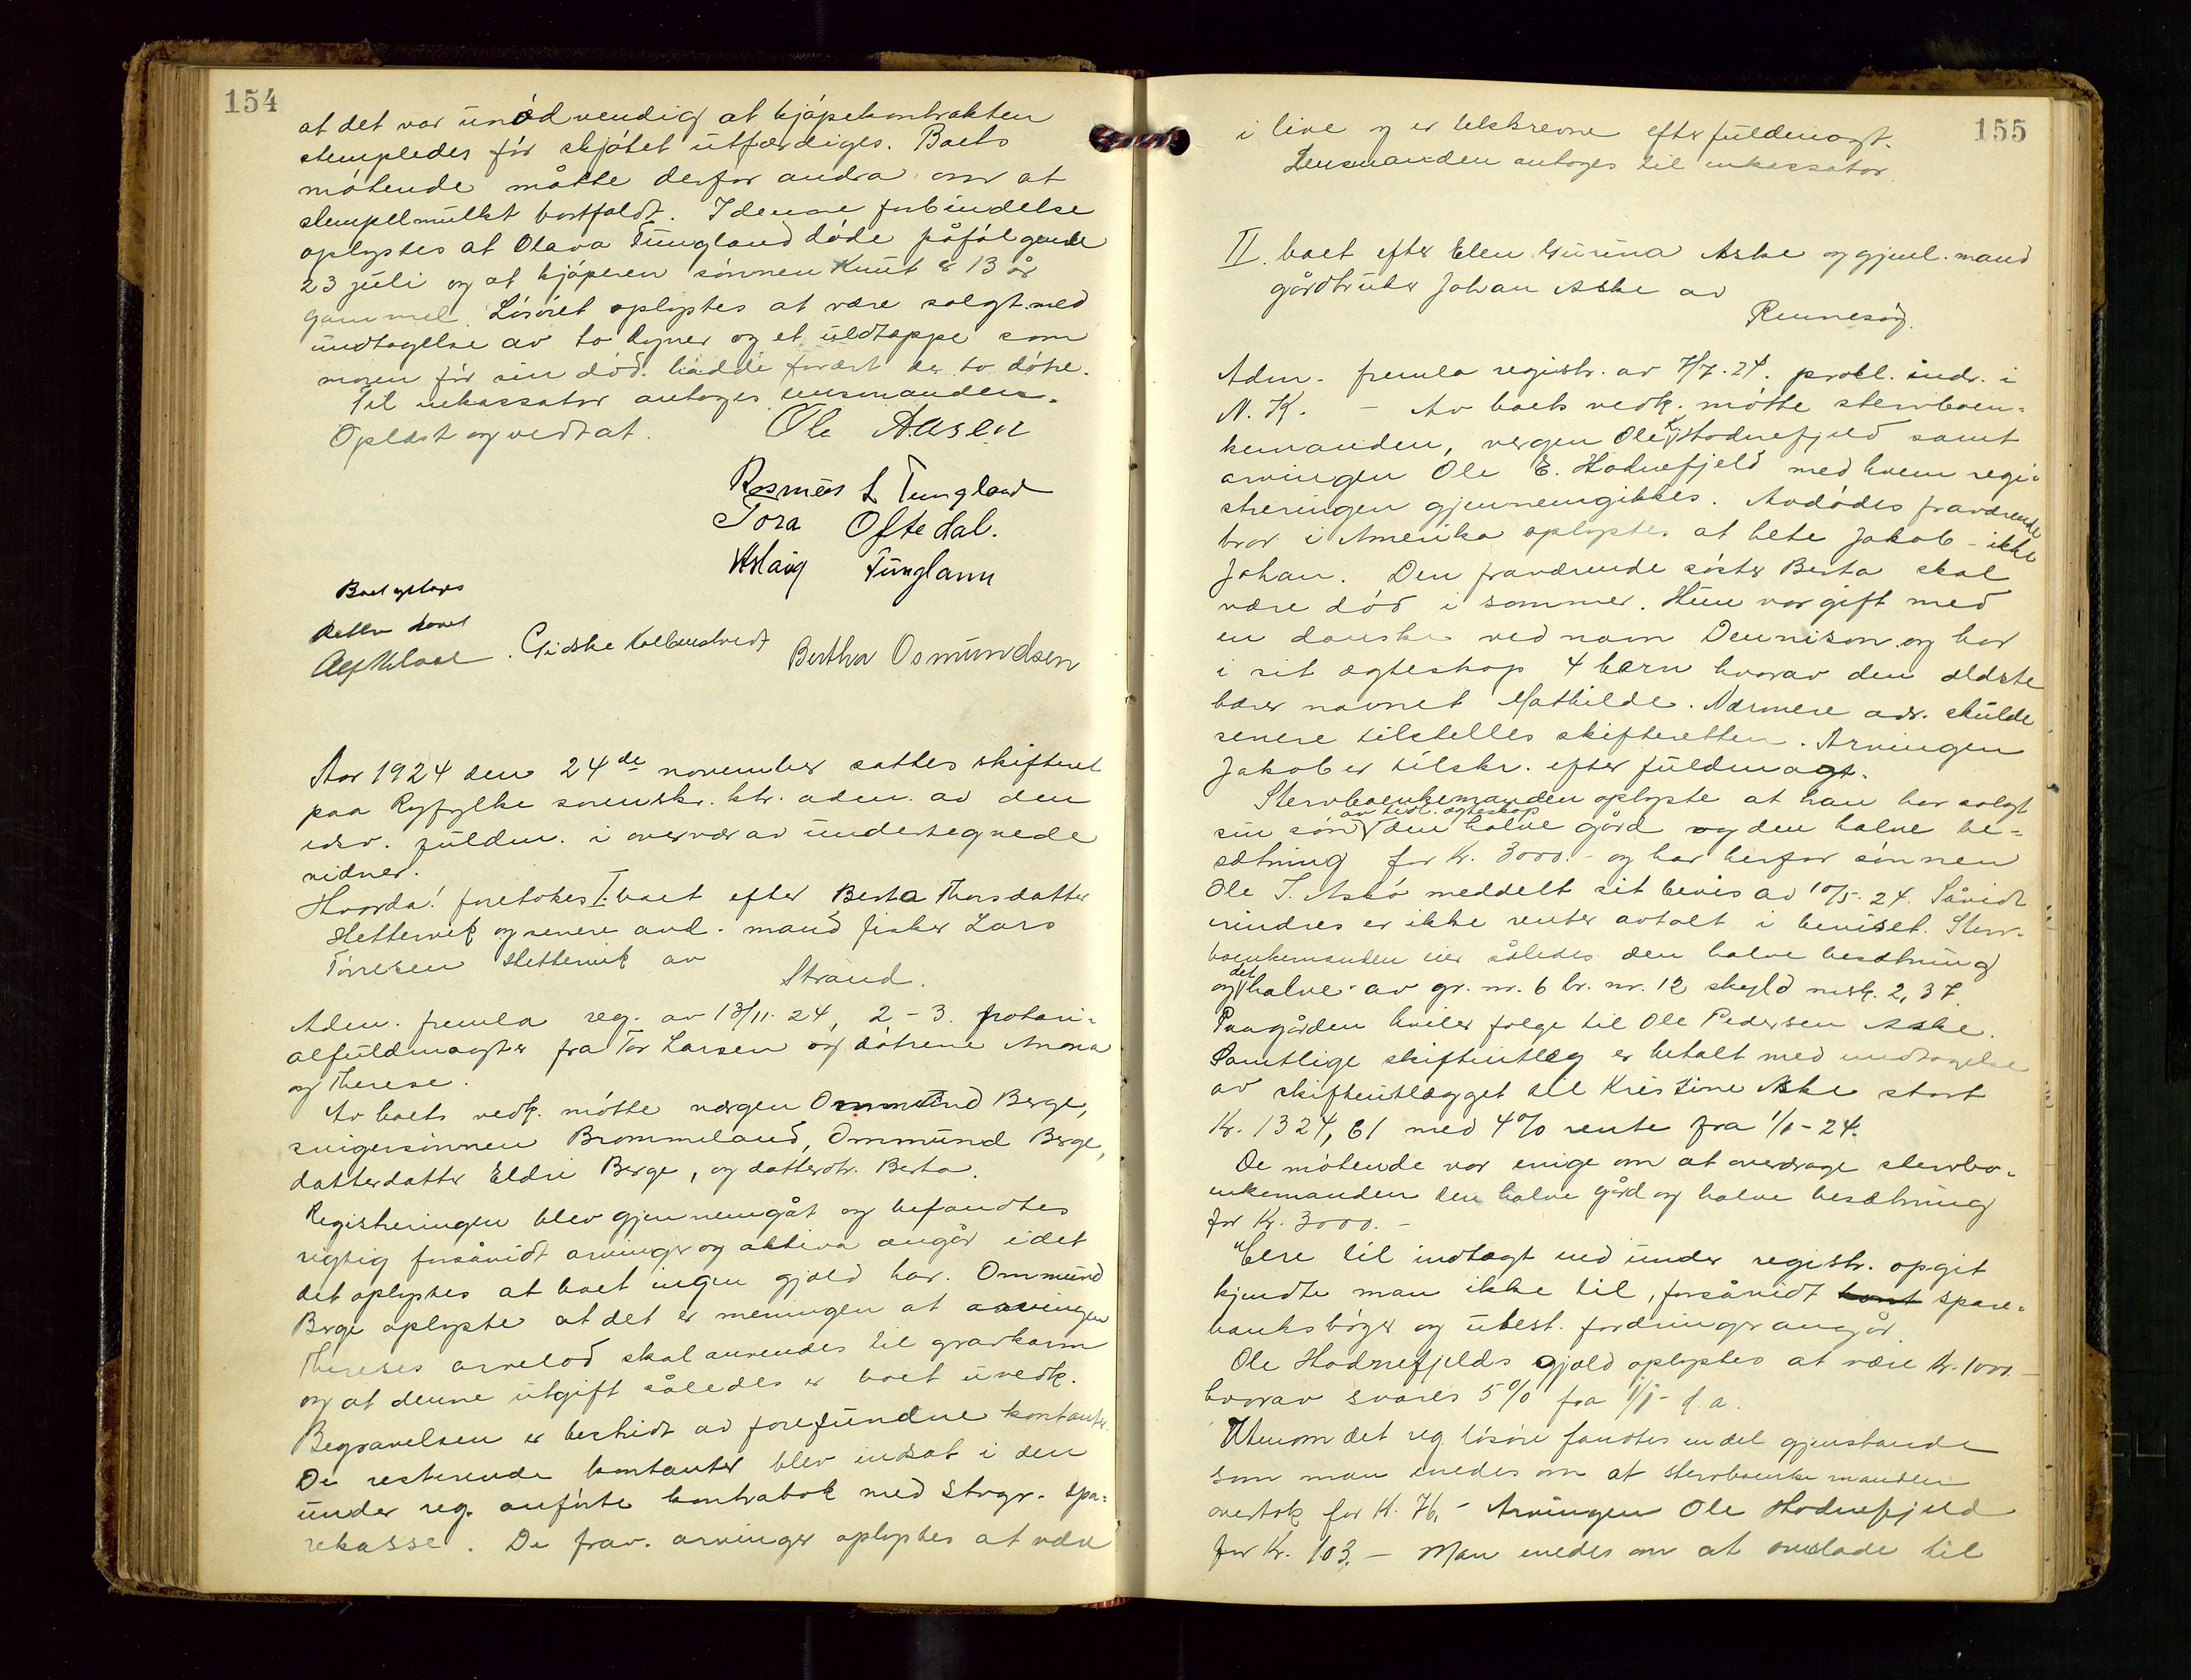 154
at det var unødvendig at kjøpekontrakten
stempledes før skjøtet utfærdiges. Boets
møtende måtte derfor andra om at
stempelmulkt bortfaldt. I denne forbindelse
oplystes at Olava Tungland døde påfølgende
23 juli og at kjøperen sønnen Knut er 13 år
gammel. Løsøret oplystes at være solgt med
undtagelse av to dyner og et uldtæppe som
moren før sin død hadde foræret de to døtre.
Til inkassator antoges lensmanden.
Oplæst og vedtat. Ole Aasen
Rasmus L Tungland
Tora Oftedal.
Aslaug Tungland
Boet opløses
Retten hævet
Gidske Kolbenstvedt Bertha Osmundsen
Aar 1924 den 24de november sattes skifteret
paa Ryfylke sorenskr. ktr. adm. av den
edsv. fuldm. i overvær av undertegnede
vidner.
Hvorda! foretokes I. boet efter Berta Thorsdatter
Slettevik og senere avd. mand fisker Lars
Tørresen Slettevik av
Strand.
Adm. fremla reg. av 13/11. 24, 2 - 3. notari-
alfuldmagter fra Tor Larsen og døtrene Anna
og Therese.
Av boets vedk. møtte værgen Ommund Berge,
svigersønnen Brommeland, Ommund Berge,
datterdatter Eldri Berge, og datterdtr. Berta.
Registreringen blev gjennemgåt og befandtes
rigtig forsåvidt arvinger og aktiva angår idet
det oplystes at boet ingen gjæld har. Ommund
Berge oplyste at det er meningen at arvingen
Thereses arvelod skal anvendes til gravkarm
og at denne utgift således er boet uvedk.
Begravelsen er bestridt av forefundne kontanter.
De resterende kontanter blev indsat i den
under reg. anførte kontrabok med Stvgr. spa-
rekasse. De frav. arvinger oplystes at være
155
i live og er tilskrevne efter fuldmagt.
Lensmanden antoges til inkassator.
II. boet efter Elen Gurina Aske og gjenl. mand
gårdbruker Johan Aske av
Rennesøy.
Adm. fremla registr. av 7/7. 24. prokl. indr. i
N. K. - Av boets vedk. møtte stervboen-
kemanden, vergen Ole K. Hodnefjeld samt
arvingen Ole E. Hodnefjeld med hvem regi-
streringen gjennemgikkes. Avdødes fraværende
bror i Amerika oplystes at hete Jakob - ikke
Johan. Den fraværende søster Berta skal
være død i sommer. Hun var gift med
en danske ved navn Dennison og har
i sit ægteskap 4 børn hvorav den ældste
bærer navnet Mathilde. Nærmere adr. skulde
senere tilstelles skifteretten. Arvingen
Jakob er tilskr. efter fuldmagt.
Stervboenkemanden oplyste at han har solgt
sin søn av tidl. ægteskap den halve gård og den halve be-
sætning for kr. 3000.- og har herfor sønnen
Ole J. Askø meddelt sit bevis av 10/5. 24. Såvidt
erindres er ikke renter avtalt i beviset. Sterv-
boenkemanden eier således den halve besætning
og det halve av gr. nr. 6 br. nr. 12 skyld mrk. 2,37.
Paa gården hviler følge til Ole Pedersen Aske.
Samtlige skifteutlæg er betalt med undtagelse
av skifteutlægget til Kristine Aske stort
Kr. 1324,61 med 4% rente fra 1/1-24.
De møtende var enige om at overdrage stervbo-
enkemanden den halve gård og halve besætning
for Kr. 3000.-
Eiere til indtægt end under registr. opgit
kjendte man ikke til, forsåvidt spare-
banksbøger og utest. fordringer angår.
Ole Hodnefjelds gjæld oplystes at være kr. 1000.-
hvorav svares 5% fra 1/1- d. a.
Utenom det reg. løsøre fandtes en del gjenstande
som man enedes om at stervboenkemanden
overtok for Kr. 76,- Arvingen Ole Hodnefjeld
for Kr. 103,- Man enedes om at overlade til